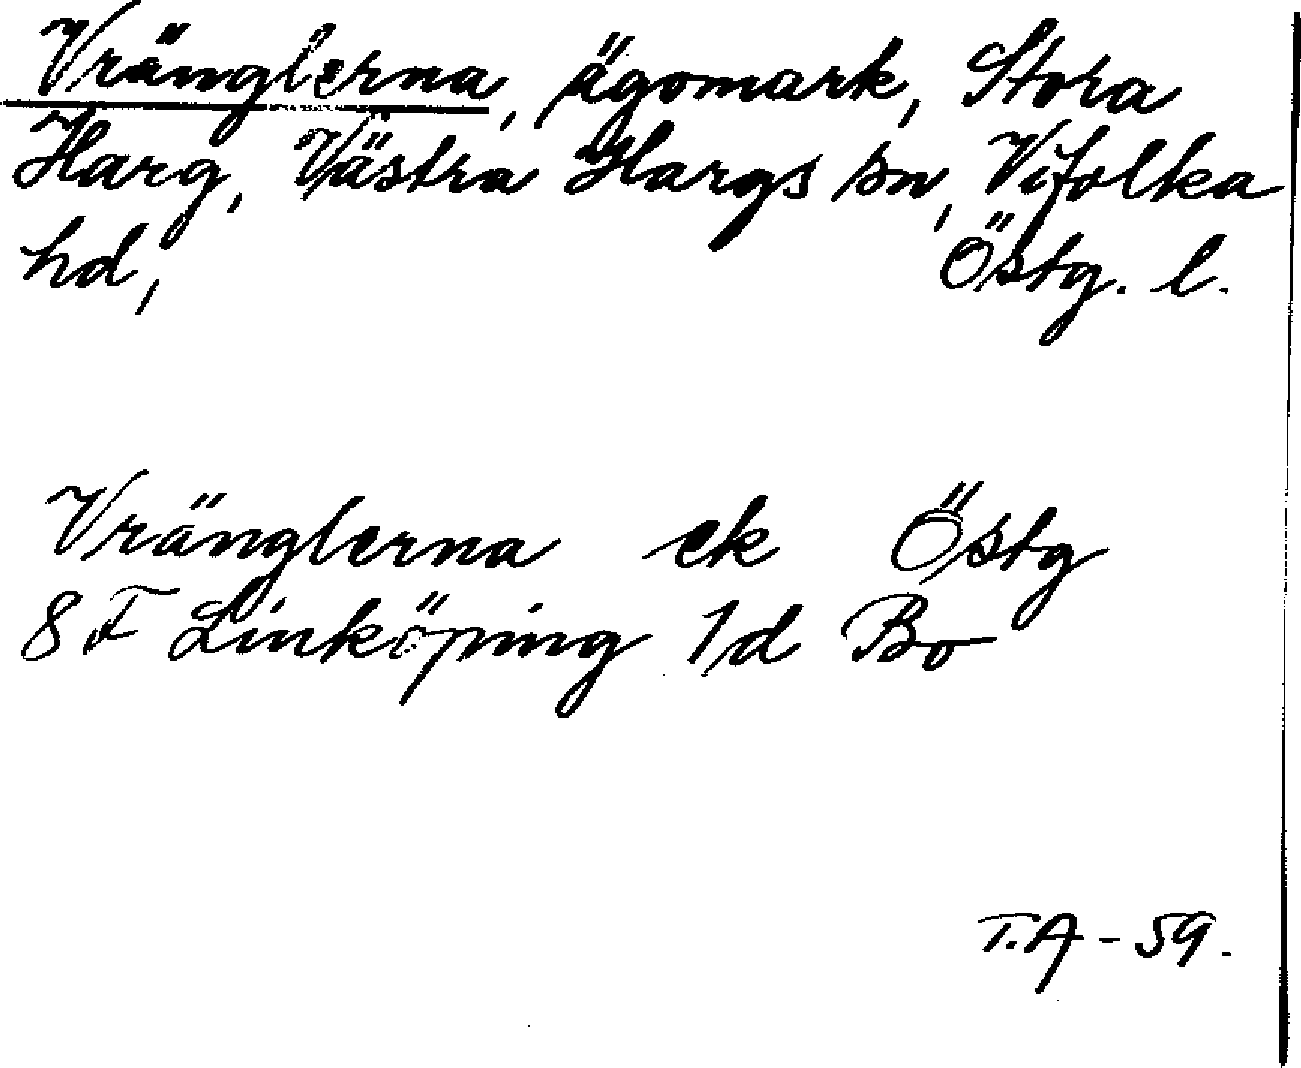 Vränglerna, ägomark, Stora
Harg, Västra Hargs sn, Vifolka
hd, Östg. l.
Vränglerna ek Östg
8 F Linköping 1d Bo
T.A - 59.